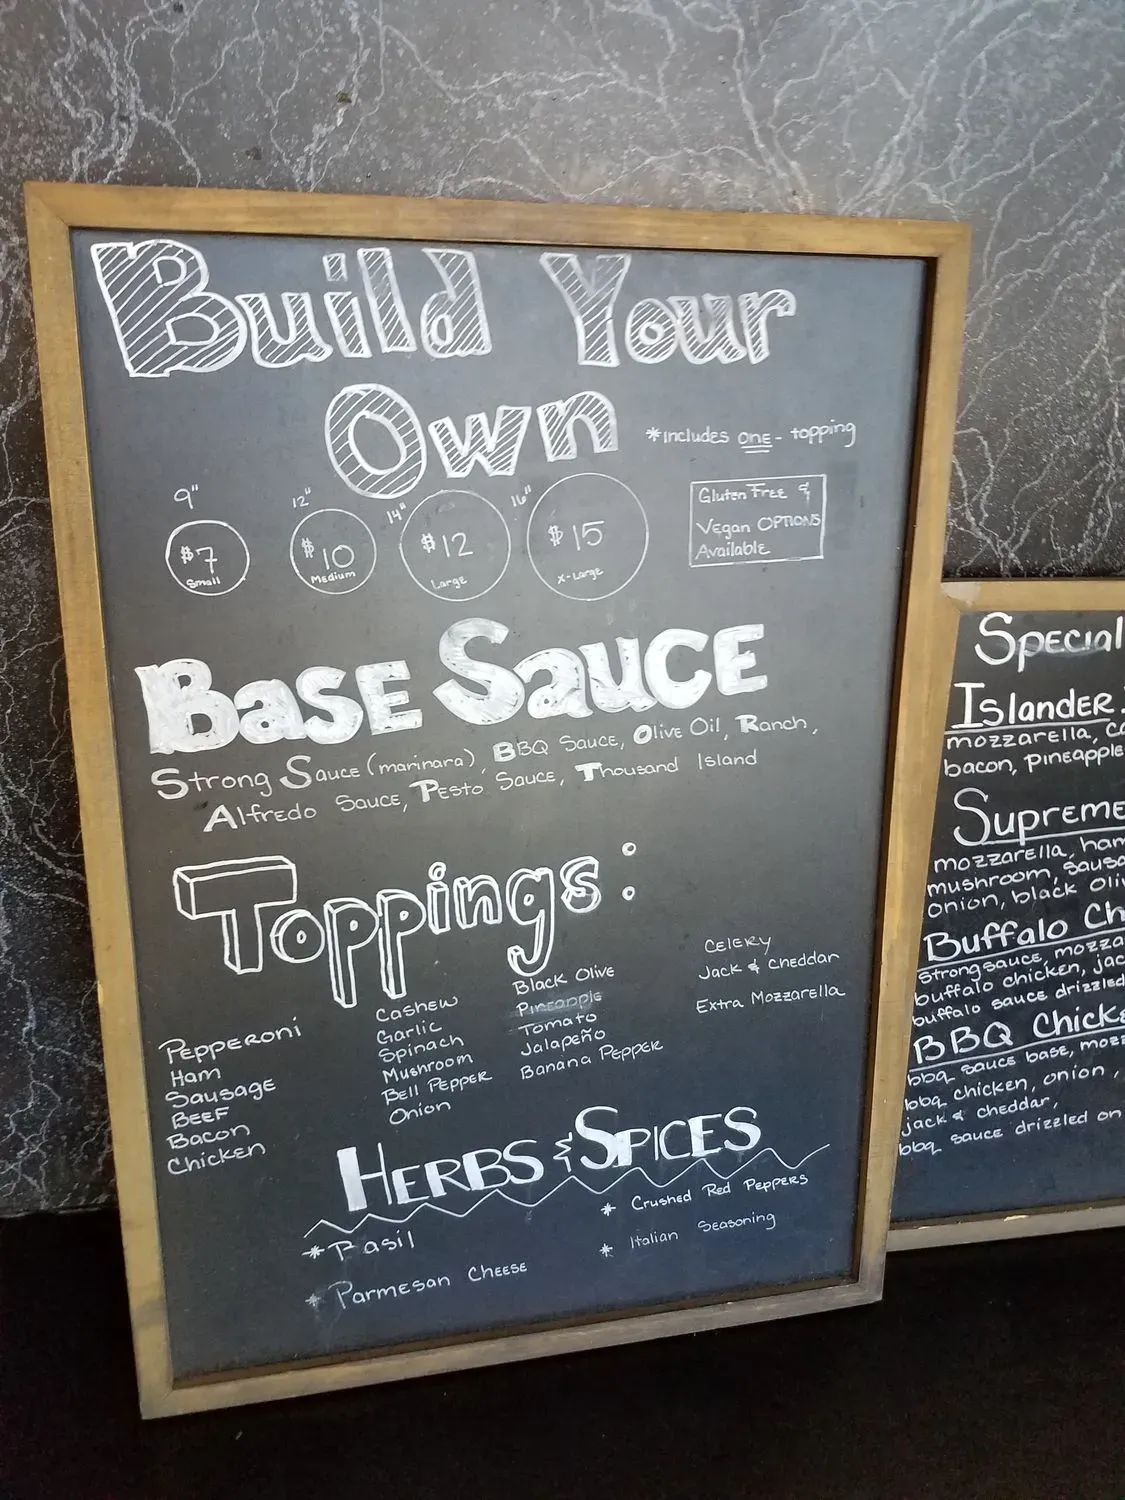 Build Your
Own
*includes one - topping
9"
12"
14"
16"
$7
Small
$10
Medium
$12
Large
$15
X-Large
Gluten Free &
Vegan OPTIONS
Available
BASE SAUCE
Strong Sauce (marinara), BBQ Sauce, Olive Oil, Ranch,
Alfredo Sauce, Pesto Sauce, Thousand Island
Toppings:
PEPPERONI
Ham
SAUSAGE
BEEF
Bacon
Chicken
Cashew
Garlic
Spinach
Mushroom
Bell PEPPER
Onion
Black Olive
Pineapple
Tomato
Jalapeño
Banana PEPPER
CELERY
Jack & Cheddar
Extra Mozzarella
HERBS & SPICES
* Basil
* Parmesan Cheese
* Crushed Red Peppers
* Italian Seasoning
Special
Islander
mozzarella,
bacon, pineapple
Supreme
mozzarella, ham
mushroom,
onion, black
Buffalo
strong sauce,
buffalo chicken,
buffalo sauce drizzled
BBQ
bbq sauce base,
bbq chicken, onion,
jack & cheddar,
bbq sauce drizzled on